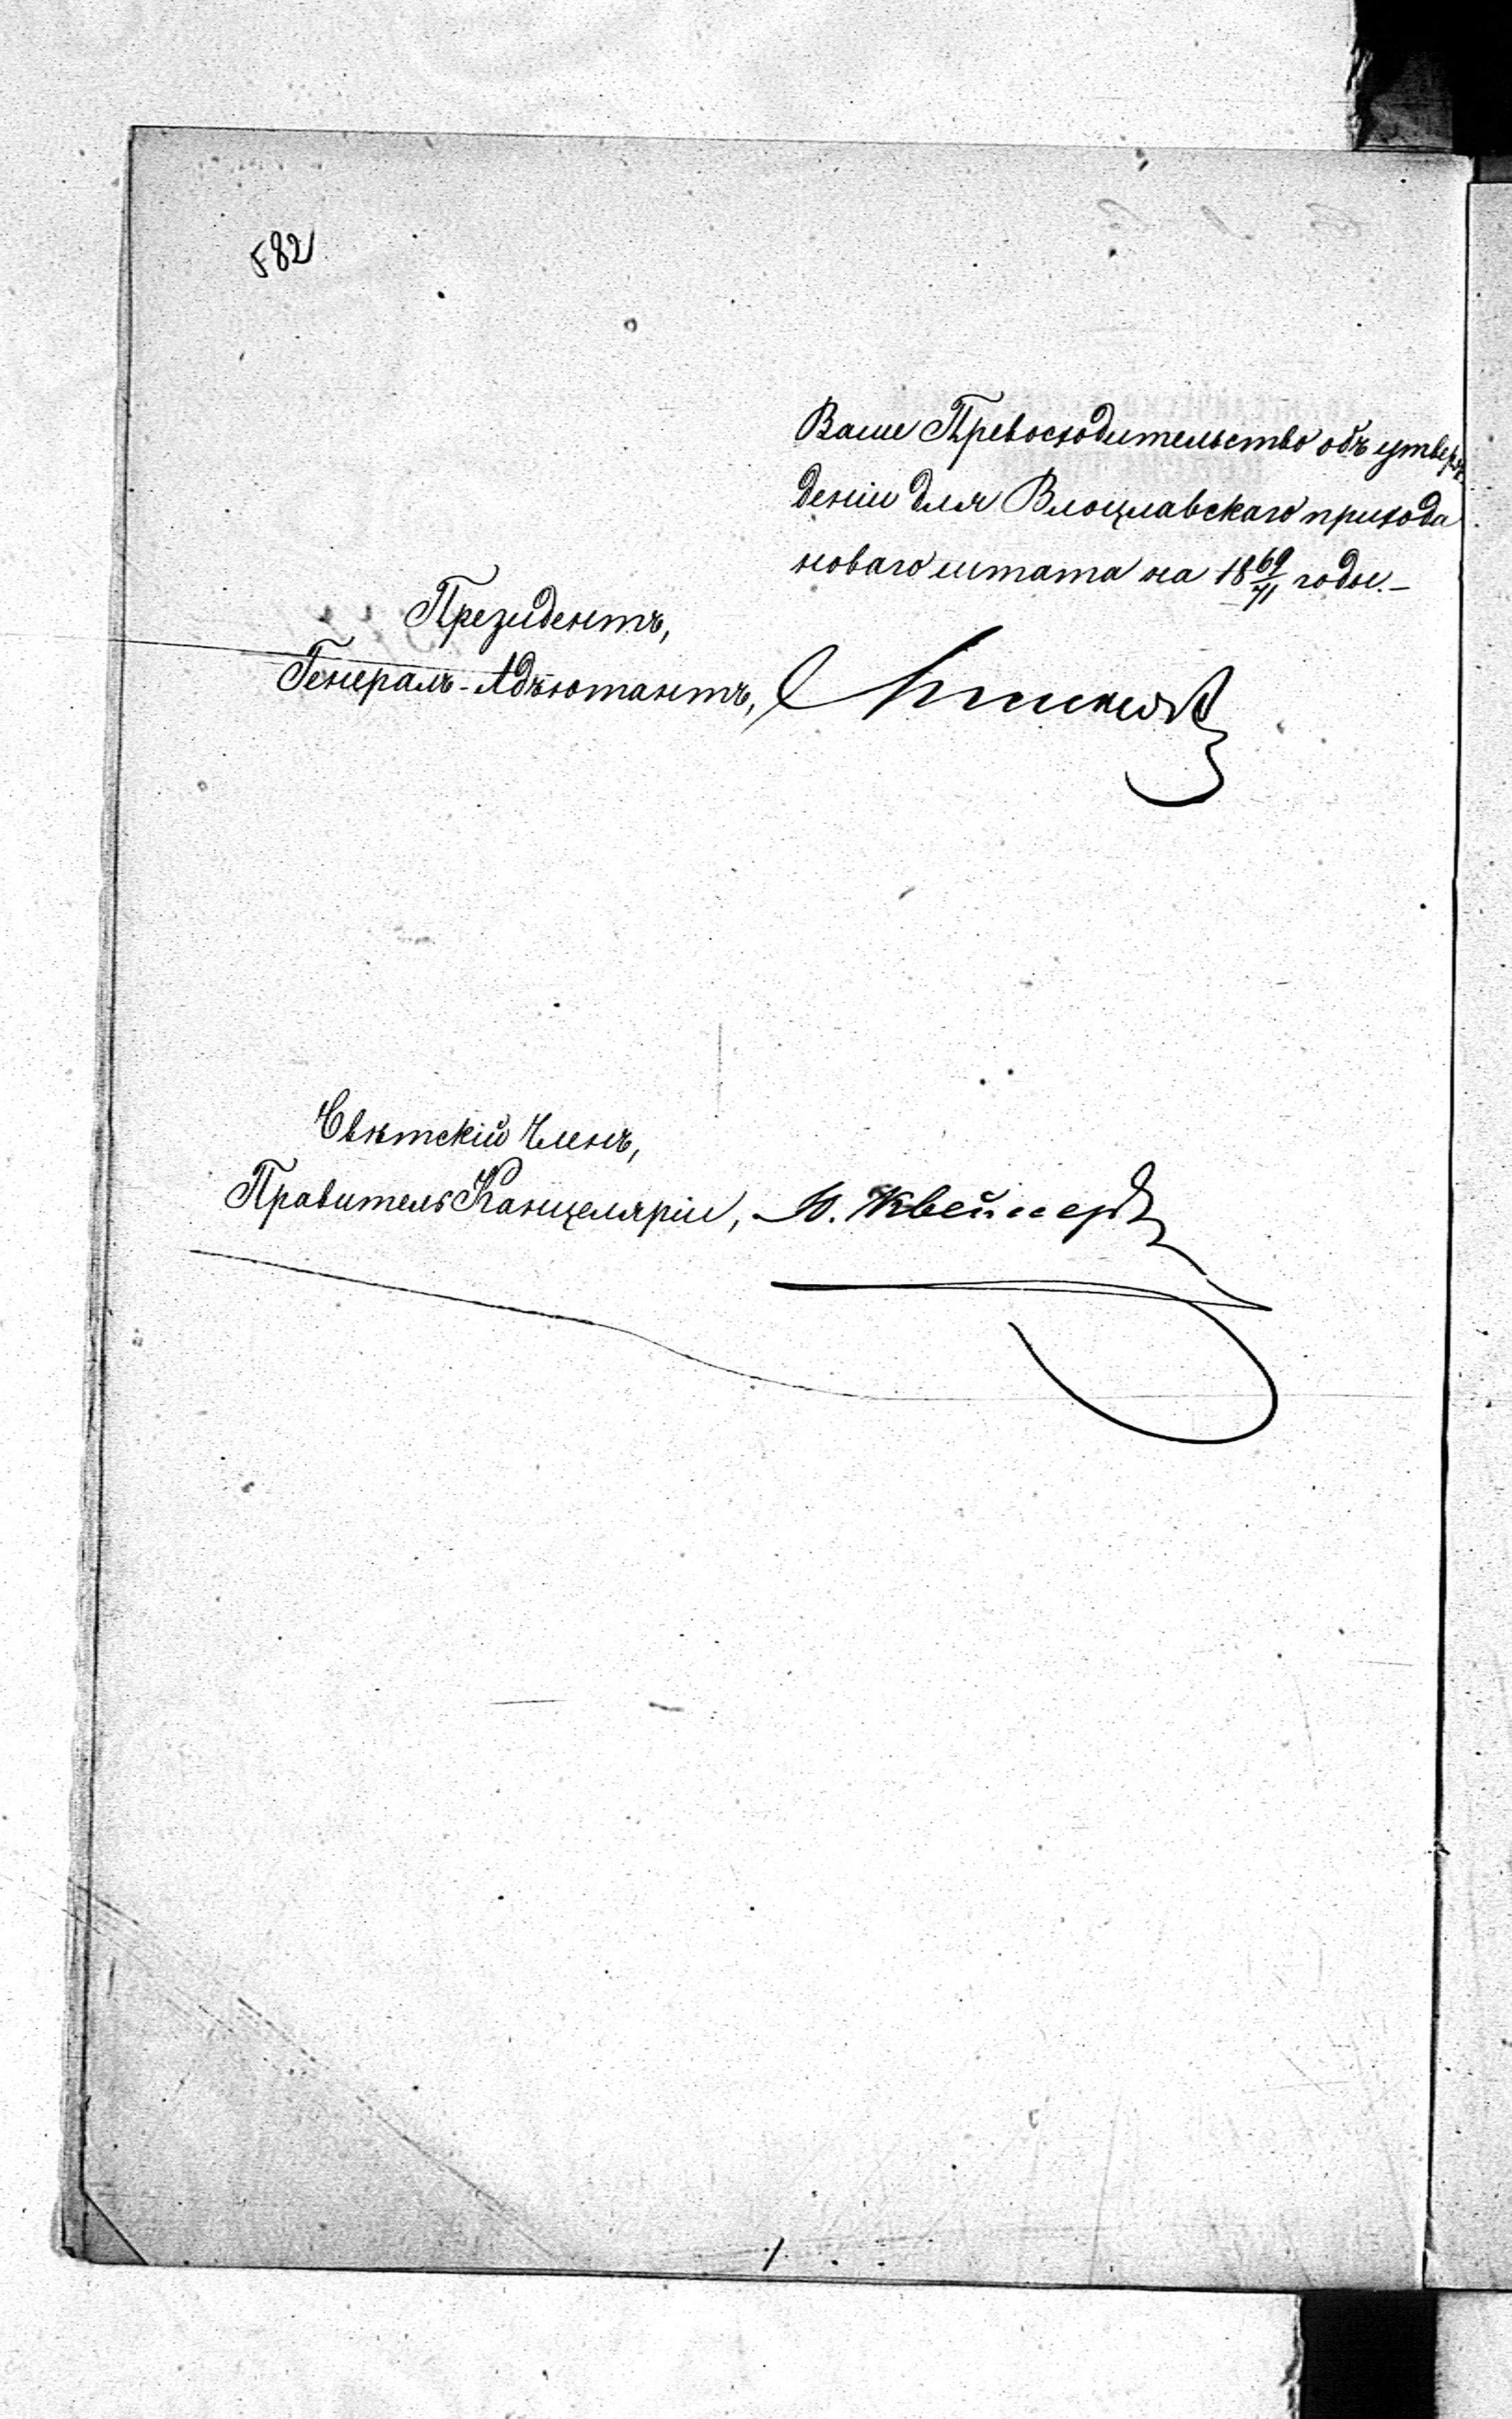 582
Ваше Превосходительство объ утверж
деніи для Влоцлавскаго прихода
новаго штата на 18 69/71 годы.-
Президентъ,
Генералъ-Адъютантъ,
Свѣтскій Членъ,
Правитель Канцеляріи,